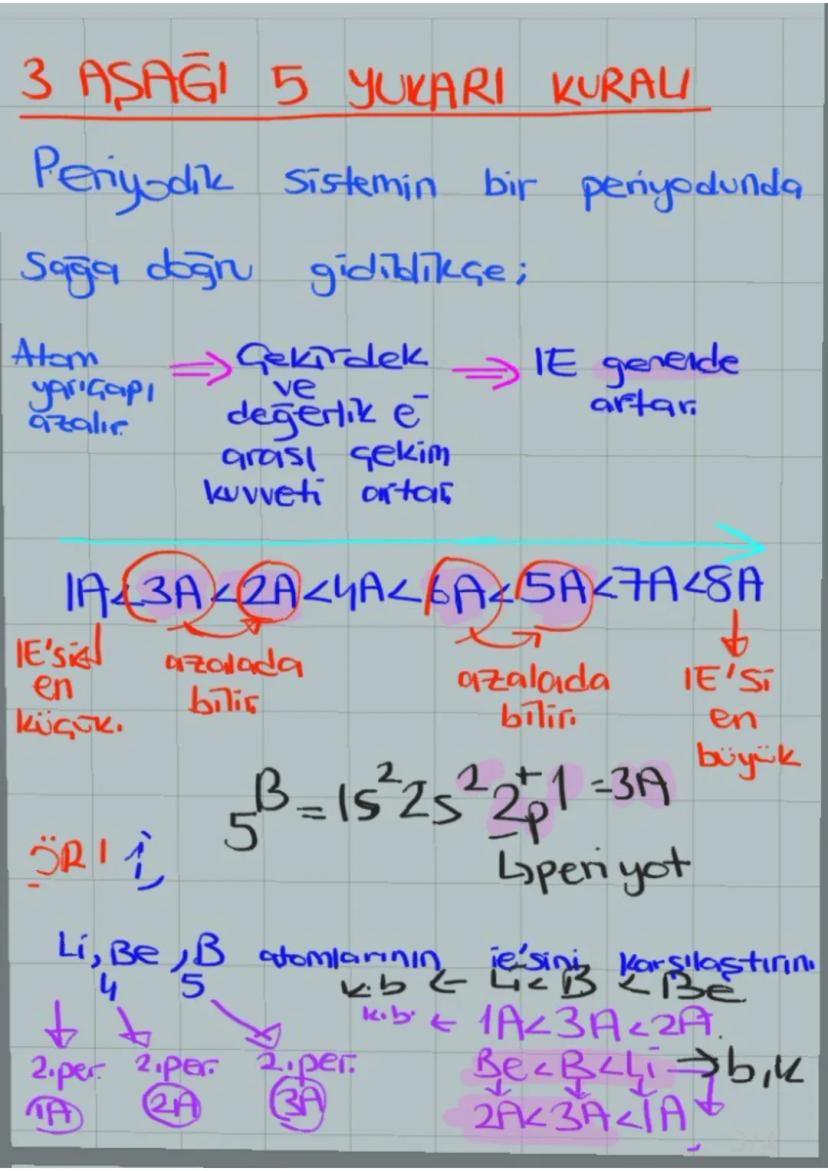 3 AŞAĞI 5 YUKARI KURALI
Periyodik sistemin bir periyodunda
Sağa doğru gidildikçe;
Atom yarıçapı azalır. ⇒ Çekirdek ve değerlik e⁻ arası çekim kuvveti artar. ⇒ IE genelde artar.
1A<3A<2A<4A<6A<5A<7A<8A
IE'si en küçük. azalada bilir. azalada bilir. IE'si en büyük
5B=1s²2s²2p1=3A
↳periyot
ÖR1 i
Li, Be, B atomlarının ie'sini karşılaştırın.
4 5 k.b ← Li<B<Be
k.b. ← 1A<3A<2A.
2.per. 2.per. 2.per. Be<B<Li → b.k
1A 2A 3A 2A<3A<1A